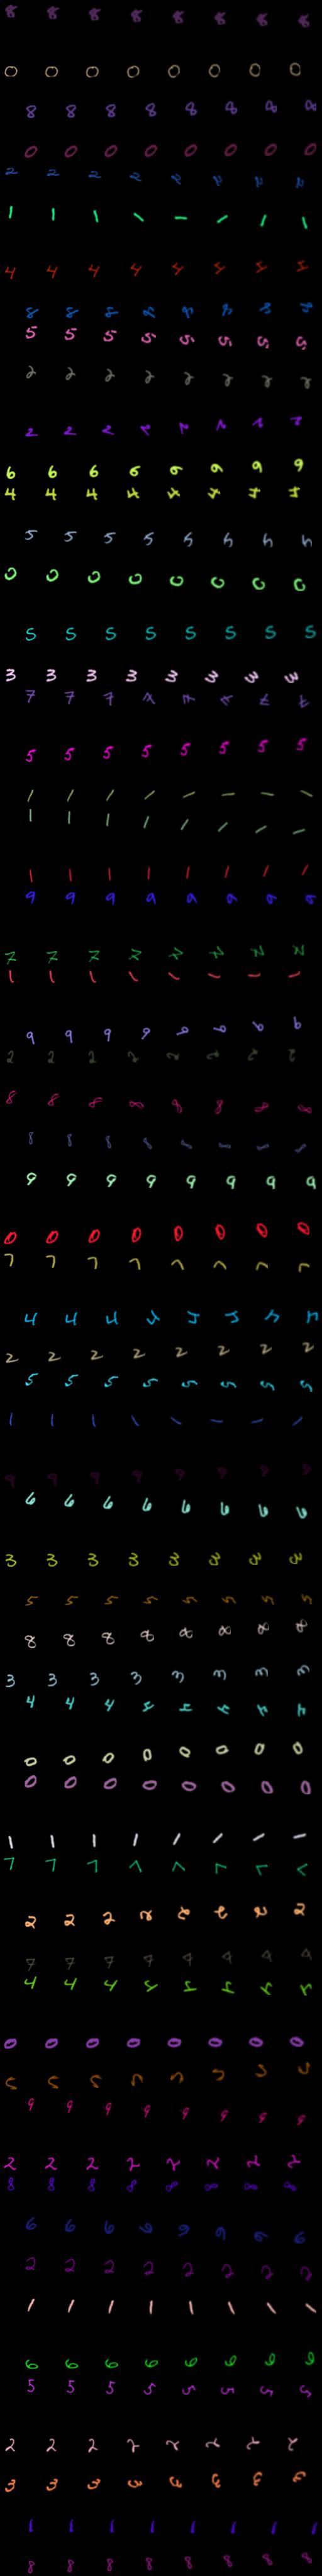 8 8 8 8 8 8 8 8
0 0 0 0 0 0 0 0
8 8 8 8 8 8 8 8
0 0 0 0 0 0 0 0
2 2 2 2 2 2 2 2
1 1 1 1 1 1 1 1
4 4 4 4 4 4 4 4
8 8 8 8 8 8 8 8
5 5 5 5 5 5 5 5
2 2 2 2 2 2 2 2
2 2 2 2 2 2 2 2
6 6 6 6 6 6 6 6
4 4 4 4 4 4 4 4
5 5 5 5 5 5 5 5
0 0 0 0 0 0 0 0
5 5 5 5 5 5 5 5
3 3 3 3 3 3 3 3
7 7 7 7 7 7 7 7
5 5 5 5 5 5 5 5
1 1 1 1 1 1 1 1
1 1 1 1 1 1 1 1
1 1 1 1 1 1 1 1
9 9 9 9 9 9 9 9
7 7 7 7 7 7 7 7
1 1 1 1 1 1 1 1
9 9 9 9 9 9 9 9
2 2 2 2 2 2 2 2
8 8 8 8 8 8 8 8
8 8 8 8 8 8 8 8
9 9 9 9 9 9 9 9
0 0 0 0 0 0 0 0
7 7 7 7 7 7 7 7
4 4 4 4 4 4 4 4
2 2 2 2 2 2 2 2
5 5 5 5 5 5 5 5
1 1 1 1 1 1 1 1
9 9 9 9 9 9 9 9
6 6 6 6 6 6 6 6
3 3 3 3 3 3 3 3
5 5 5 5 5 5 5 5
8 8 8 8 8 8 8 8
3 3 3 3 3 3 3 3
4 4 4 4 4 4 4 4
0 0 0 0 0 0 0 0
0 0 0 0 0 0 0 0
1 1 1 1 1 1 1 1
7 7 7 7 7 7 7 7
2 2 2 2 2 2 2 2
7 7 7 7 7 7 7 7
4 4 4 4 4 4 4 4
0 0 0 0 0 0 0 0
5 5 5 5 5 5 5 5
9 9 9 9 9 9 9 9
2 2 2 2 2 2 2 2
8 8 8 8 8 8 8 8
6 6 6 6 6 6 6 6
2 2 2 2 2 2 2 2
1 1 1 1 1 1 1 1
6 6 6 6 6 6 6 6
5 5 5 5 5 5 5 5
2 2 2 2 2 2 2 2
3 3 3 3 3 3 3 3
1 1 1 1 1 1 1 1
8 8 8 8 8 8 8 8